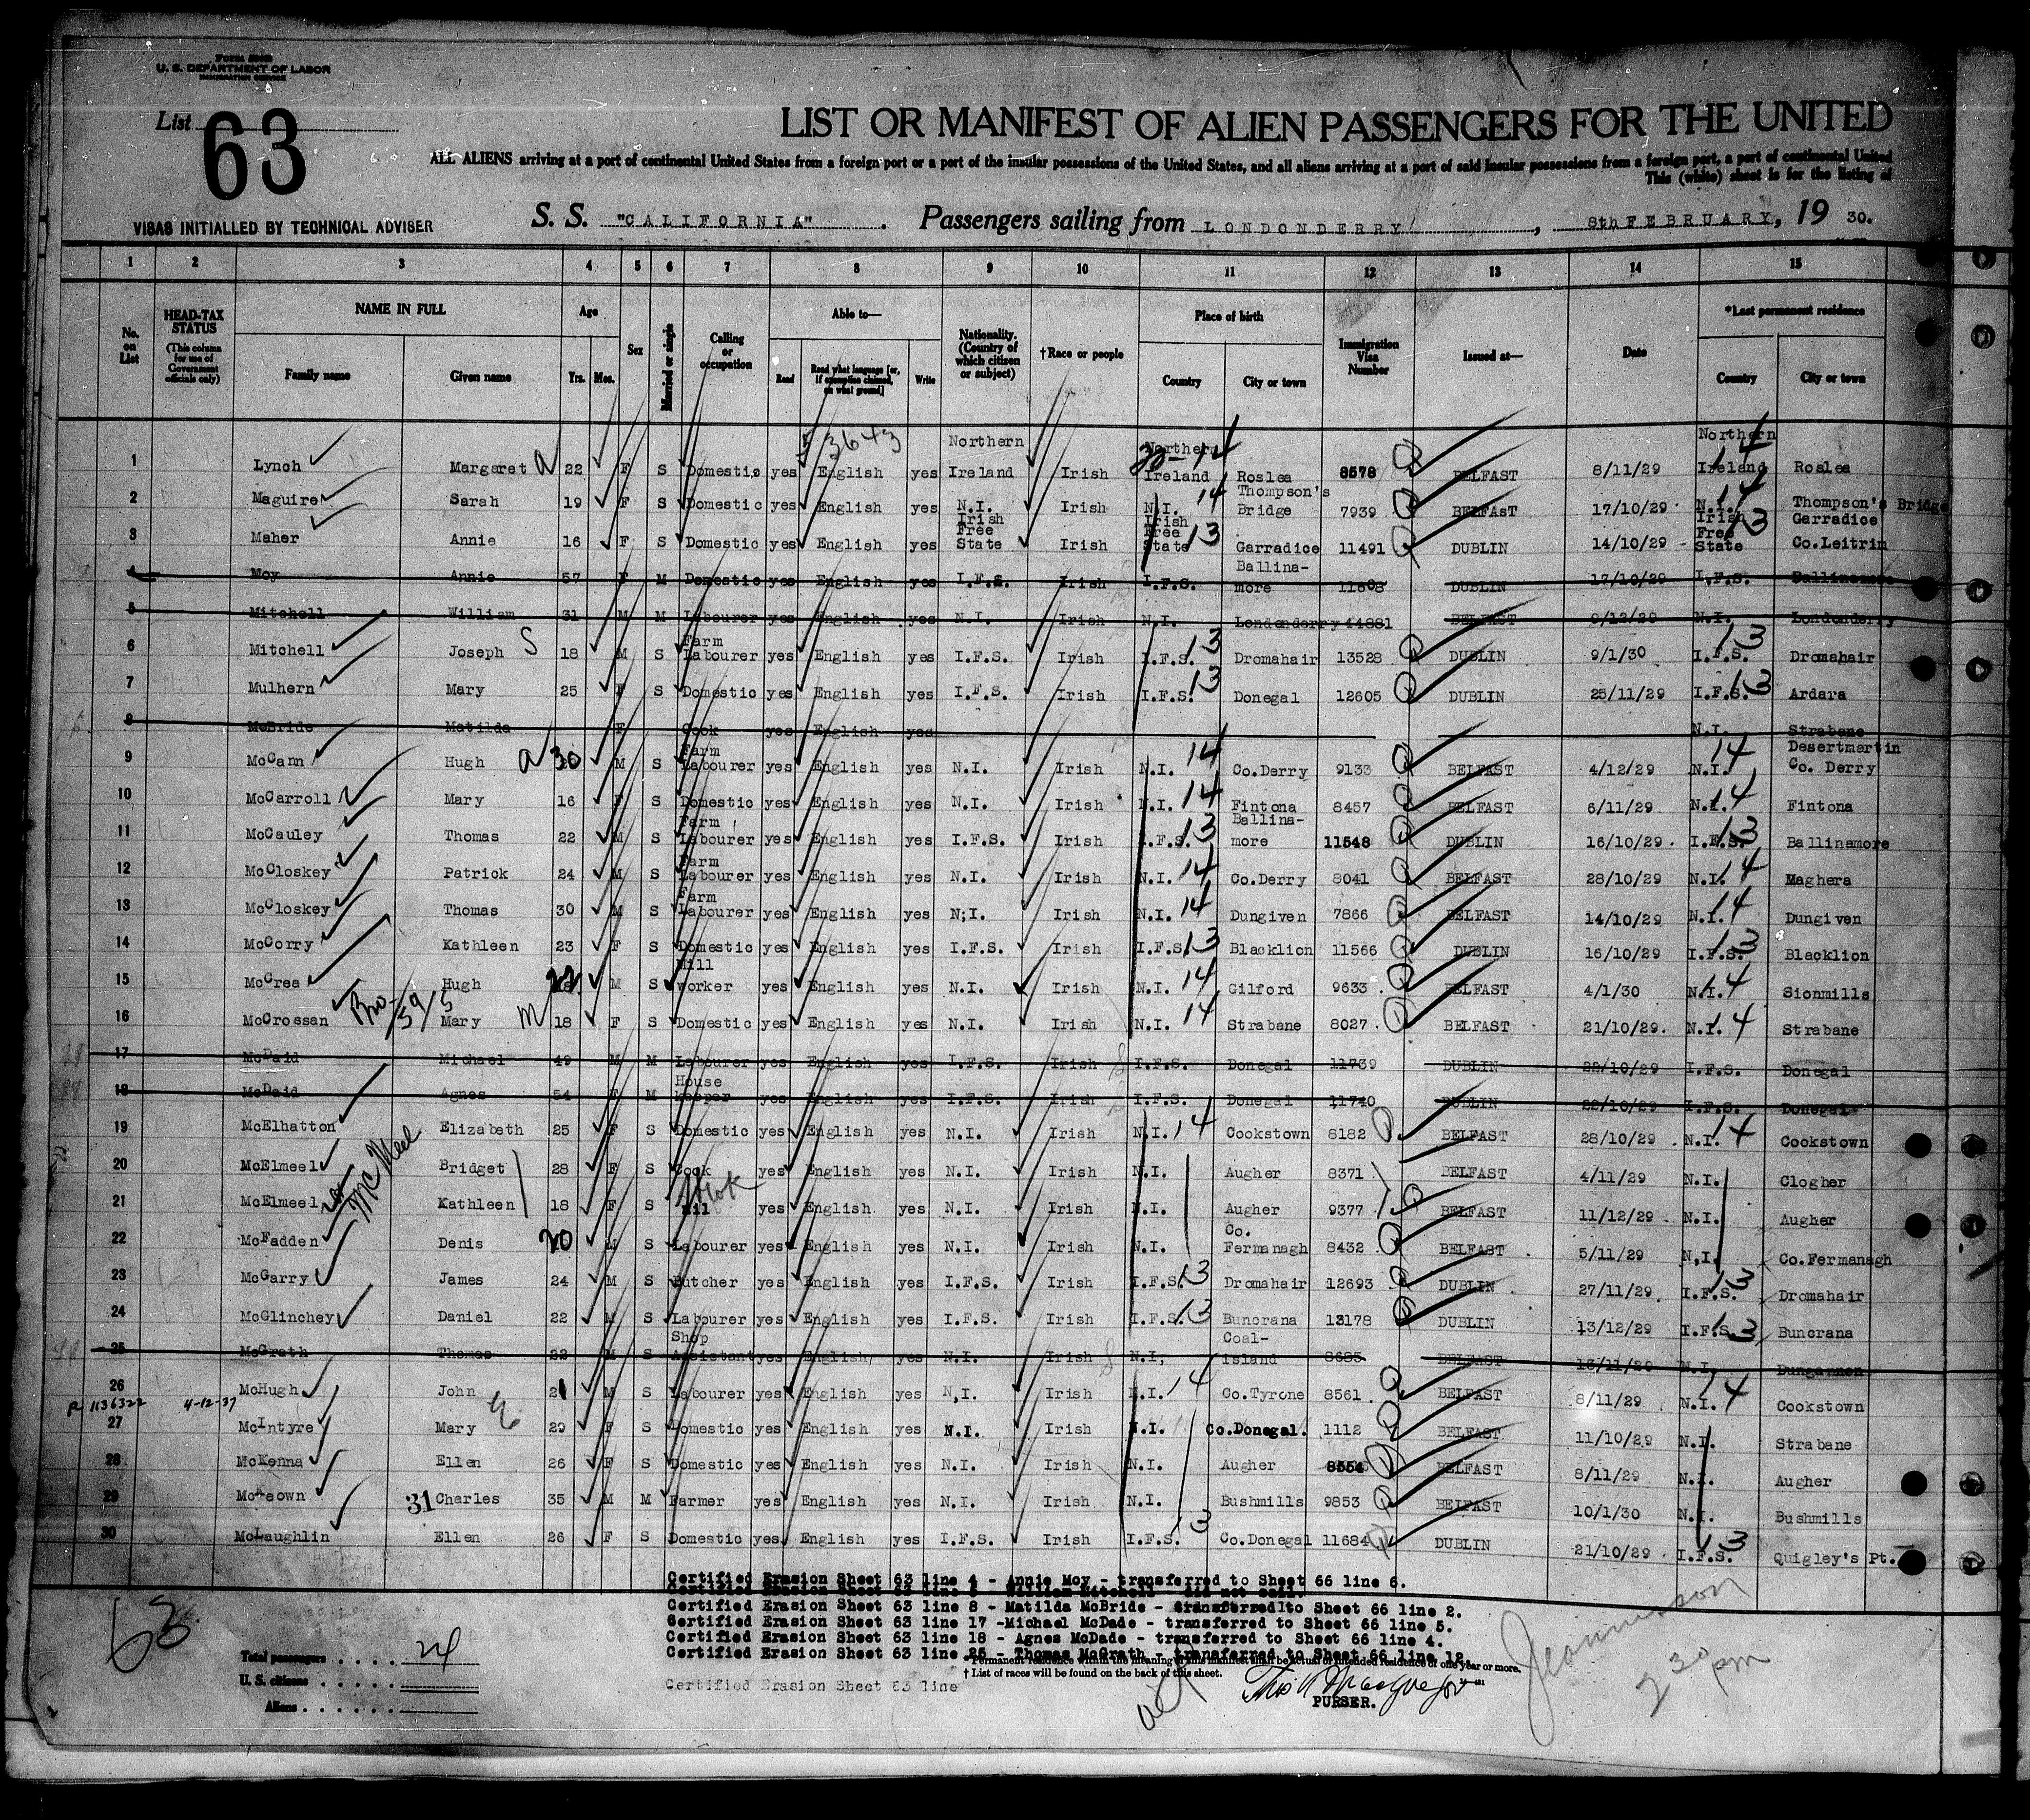 Form 500B
U. S. DEPARTMENT OF LABOR
IMMIGRATION SERVICE
List 63
LIST OR MANIFEST OF ALIEN PASSENGERS FOR THE UNITED
ALL ALIENS arriving at a port of continental United States from a foreign port or a part of the insular possessions of the United States, and all aliens arriving at a port of said insular possessions from a foreign port, a part of continental United
This (white) sheet is for the listing of
VISAS INITIALLED BY TECHNICAL ADVISER
S. S. "CALIFORNIA". Passengers sailing from LONDONDERRY, 8th FEBRUARY, 19 30.
1 2 3 4 5 6 7 8 9 10 11 12 13 14 15
No. on List
HEAD-TAX STATUS (This column for use of Government officials only)
NAME IN FULL
Family name Given name
Age Yrs. Mos.
Sex
Married or single
Calling or occupation
Able to— Read Read what language [or, if exemption claimed, on what ground] Write
Nationality. (Country of which citizen or subject)
†Race or people
Place of birth Country City or town
Immigration Visa Number
Issued at—
Date
*Last permanent residence Country City or town
53643
1 Lynch Margaret a 22 F S Domestic yes English yes Northern Ireland Irish Northern Ireland 14 Roslea 8578 BELFAST 8/11/29 Northern Ireland 14 Roslea
2 Maguire Sarah 19 F S Domestic yes English yes N.I. Irish N.I. 14 Thompson's Bridge 7939 BELFAST 17/10/29 N.I. 14 Thompson's Bridge
3 Maher Annie 16 F S Domestic yes English yes Irish Free State Irish Irish Free State 13 Garradice 11491 DUBLIN 14/10/29 Irish Free State 13 Garradice Co.Leitrim
4 Moy Annie 57 F M Domestic yes English yes I.F.S. Irish I.F.S. Ballina-more 11608 DUBLIN 17/10/29 I.F.S. Ballinamore
5 Mitchell William 31 M M Labourer yes English yes N.I. Irish N.I. Londonderry 44881 BELFAST 9/12/29 N.I. Londonderry
6 Mitchell Joseph S 18 M S Farm Labourer yes English yes I.F.S. Irish I.F.S. 13 Dromahair 13528 DUBLIN 9/1/30 I.F.S. 13 Dromahair
7 Mulhern Mary 25 F S Domestic yes English yes I.F.S. Irish I.F.S. 13 Donegal 12605 DUBLIN 25/11/29 I.F.S. 13 Ardara
8 McBride Matilda F Cook yes English yes N.I. Strabane
9 McCann Hugh a 30 M S Farm Labourer yes English yes N.I. Irish N.I. 14 Co.Derry 9133 BELFAST 4/12/29 N.I. 14 Desertmartin Co. Derry
10 McCarroll Mary 16 F S Domestic yes English yes N.I. Irish N.I. 14 Fintona 8457 BELFAST 6/11/29 N.I. 14 Fintona
11 McCauley Thomas 22 M S Farm Labourer yes English yes I.F.S. Irish I.F.S. 13 Ballina-more 11548 DUBLIN 16/10/29 I.F.S. 13 Ballinamore
12 McCloskey Patrick 24 M S Farm Labourer yes English yes N.I. Irish N.I. 14 Co.Derry 8041 BELFAST 28/10/29 N.I. 14 Maghera
13 McCloskey Thomas 30 M S Farm Labourer yes English yes N;I. Irish N.I. 14 Dungiven 7866 BELFAST 14/10/29 N.I. 14 Dungiven
14 McCorry Kathleen 23 F S Domestic yes English yes I.F.S. Irish I.F.S. 13 Blacklion 11566 DUBLIN 16/10/29 I.F.S. 13 Blacklion
15 McCrea Hugh 22 M S Mill worker yes English yes N.I. Irish N.I. 14 Gilford 9633 BELFAST 4/1/30 N.I. 14 Sionmills
16 McCrossan Mary M 18 F S Domestic yes English yes N.I. Irish N.I. 14 Strabane 8027 BELFAST 21/10/29 N.I. 14 Strabane
17 McDaid Michael 49 M M Labourer yes English yes I.F.S. Irish I.F.S. Donegal 11739 DUBLIN 22/10/29 I.F.S. Donegal
18 McDaid Agnes 54 F M House keeper yes English yes I.F.S. Irish I.F.S. Donegal 11740 DUBLIN 22/10/29 I.F.S. Donegal
19 McElhatton Elizabeth 25 F S Domestic yes English yes N.I. Irish N.I. 14 Cookstown 8182 BELFAST 28/10/29 N.I. 14 Cookstown
20 McElmeel Mc Meel Bridget 28 F S Cook yes English yes N.I. Irish N.I. Augher 8371 BELFAST 4/11/29 N.I. Clogher
21 McElmeel Kathleen 18 F S Nil yes English yes N.I. Irish N.I. Augher 9377 BELFAST 11/12/29 N.I. Augher
22 McFadden Denis 20 M S Labourer yes English yes N.I. Irish N.I. Co. Fermanagh 8432 BELFAST 5/11/29 N,I. Co.Fermanagh
23 McGarry James 24 M S Butcher yes English yes I.F.S. Irish I.F.S. 13 Dromahair 12693 DUBLIN 27/11/29 I.F.S. 13 Dromahair
24 McGlinchey Daniel 22 M S Labourer yes English yes I.F.S. Irish I.F.S. 13 Buncrana 13178 DUBLIN 13/12/29 I.F.S. 13 Buncrana
25 McGrath Thomas 22 M S Shop Assistant yes English yes N.I. Irish N.I, Coal-island 8685 BELFAST 13/11/29 N.I. Dungannon
26 McHugh John 21 M S Labourer yes English yes N,I. Irish N.I. 14 Co.Tyrone 8561 BELFAST 8/11/29 N.I. 14 Cookstown
R 1136322 4-12-37
27 McIntyre Mary 29 F S Domestic yes English yes N.I. Irish N.I. Co.Donegal. 1112 BELFAST 11/10/29 N.I. Strabane
28 McKenna Ellen 26 F S Domestic yes English yes N.I. Irish N.I. Augher 8554 BELFAST 8/11/29 N.I. Augher
29 McKeown 31 Charles 35 M M Farmer yes English yes N.I. Irish N.I. Bushmills 9853 BELFAST 10/1/30 N.I. Bushmills
30 McLaughlin Ellen 26 F S Domestic yes English yes I.F.S. Irish I.F.S. 13 Co.Donegal 11684 DUBLIN 21/10/29 I.F.S. 13 Quigley's Pt.
Certified Erasion Sheet 63 line 4 - Annie Moy - transferred to Sheet 66 line 6.
Certified Erasion Sheet 63 line 5 - William Mitchell - did not sail.
Certified Erasion Sheet 63 line 8 - Matilda McBride - transferred to Sheet 66 line 2.
Certified Erasion Sheet 63 line 17 -Michael McDade - transferred to Sheet 66 line 5.
Certified Erasion Sheet 63 line 18 - Agnes McDade - transferred to Sheet 66 line 4.
Certified Erasion Sheet 63 line 25 - Thomas McGrath - transferred to Sheet 66 line 12.
*Permanent residence within the meaning of this manifest shall be actual or intended residence of one year or more.
† List of races will be found on the back of this sheet.
Certified Erasion Sheet 63 line
63
Total passengers . . . . 24
U. S. citizens . . . . .
Aliens . . . . . .
PURSER.
2 30 pm